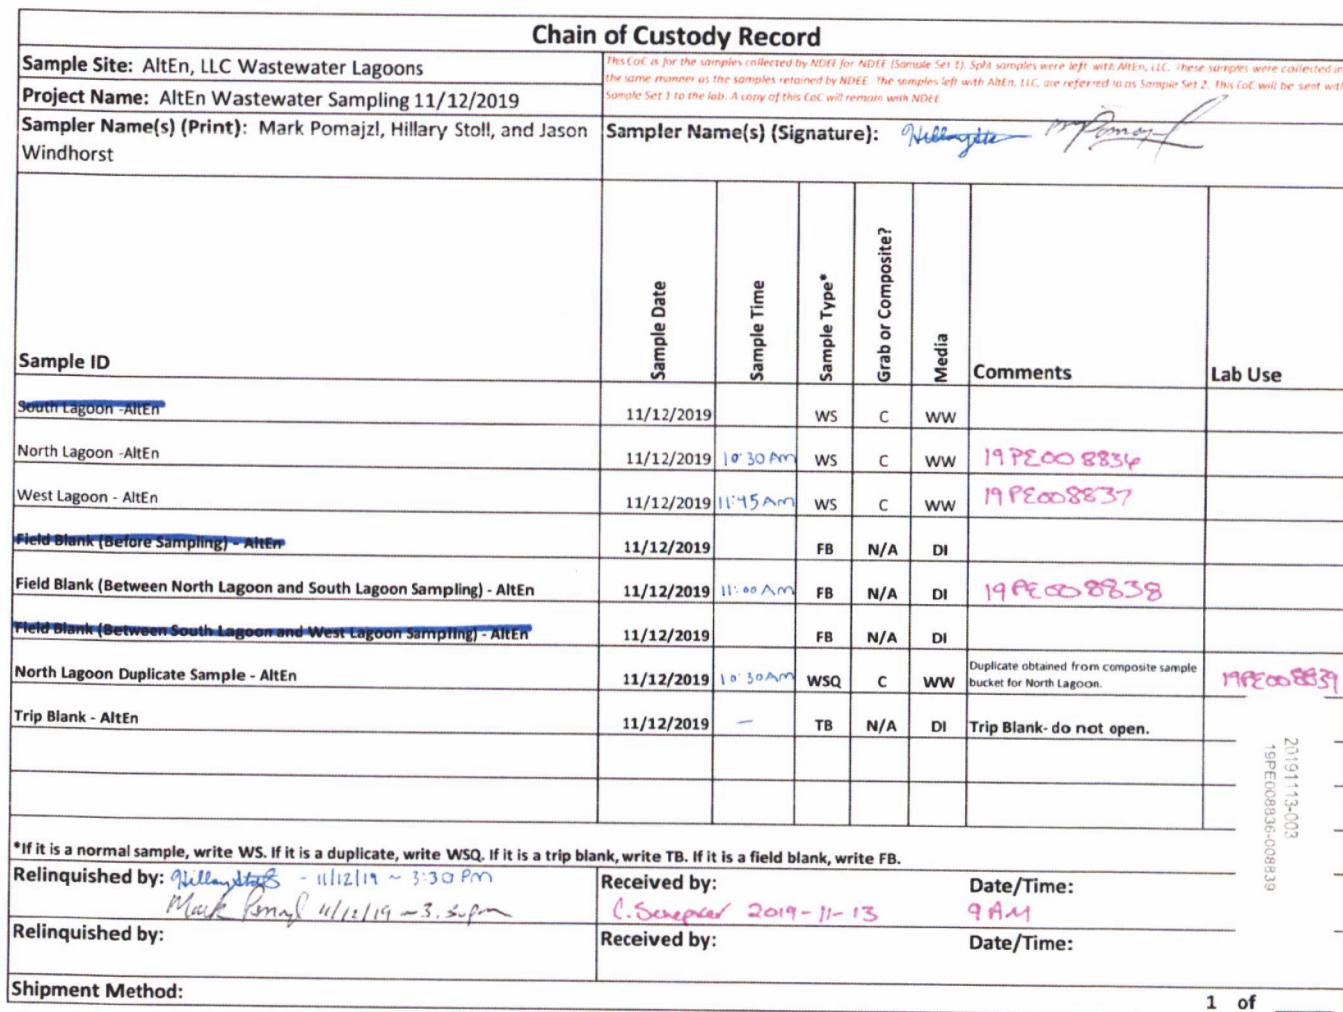 Chain of Custody Record
Sample Site: AltEn, LLC Wastewater Lagoons
This CoC is for the samples collected by NDEE for NDEE (Sample Set 1). Split samples were left with AltEn, LLC. These samples were collected in
the same manner as the samples retained by NDEE. The samples left with AltEn, LLC, are referred to as Sample Set 2. This CoC will be sent with
Sample Set 1 to the lab. A copy of this CoC will remain with NDEE
Project Name: AltEn Wastewater Sampling 11/12/2019
Sampler Name(s) (Print): Mark Pomajzl, Hillary Stoll, and Jason
Windhorst
Sampler Name(s) (Signature):
Sample ID Sample Date Sample Time Sample Type* Grab or Composite? Media Comments Lab Use
South Lagoon -AltEn 11/12/2019 WS C WW
North Lagoon -AltEn 11/12/2019 10:30 Am WS C WW 19PE008836
West Lagoon - AltEn 11/12/2019 11:45 Am WS C WW 19PE008837
Field Blank (Before Sampling) - AltEn 11/12/2019 FB N/A DI
Field Blank (Between North Lagoon and South Lagoon Sampling) - AltEn 11/12/2019 11:00 Am FB N/A DI 19PE008838
Field Blank (Between South Lagoon and West Lagoon Sampling) - AltEn 11/12/2019 FB N/A DI
North Lagoon Duplicate Sample - AltEn 11/12/2019 10:30 Am WSQ C WW Duplicate obtained from composite sample
bucket for North Lagoon. 19PE008839
Trip Blank - AltEn 11/12/2019 — TB N/A DI Trip Blank- do not open.
20191113-003
19PE008836-008839
*If it is a normal sample, write WS. If it is a duplicate, write WSQ. If it is a trip blank, write TB. If it is a field blank, write FB.
Relinquished by: Hillary Stoll - 11/12/19 ~ 3:30 Pm
Mark Pomajzl 11/12/19 ~ 3:30pm
Received by:
2019-11-13
Date/Time:
9 AM
Relinquished by:
Received by:
Date/Time:
Shipment Method:
1 of